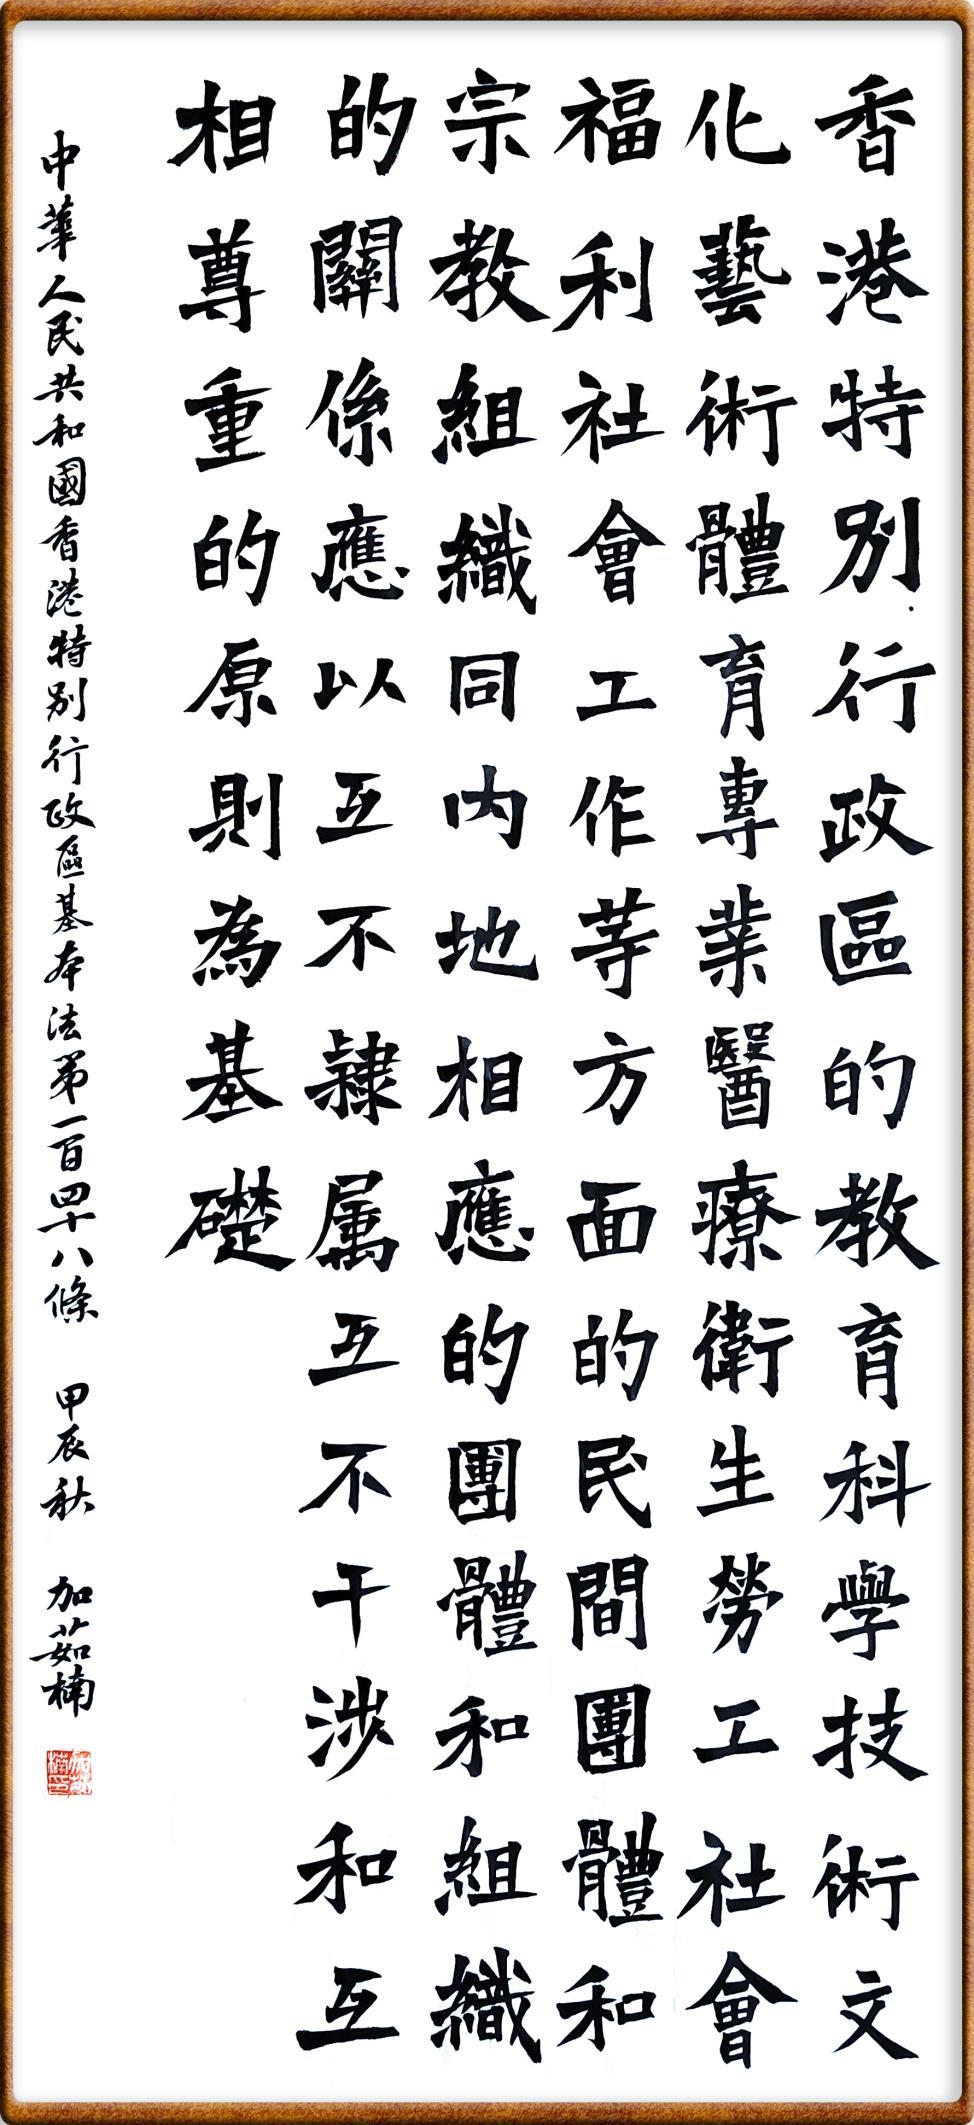 香港特別行政區的教育科學技術文
化藝術體育專業醫療衛生勞工社會
福利社會工作等方面的民間團體和
宗教組織同內地相應的團體和組織
的關係應以互不隸属互不干涉和互
相尊重的原則為基礎
中華人民共和國香港特別行政區基本法第一百四十八條 甲辰秋 加茹楠
加茹楠印